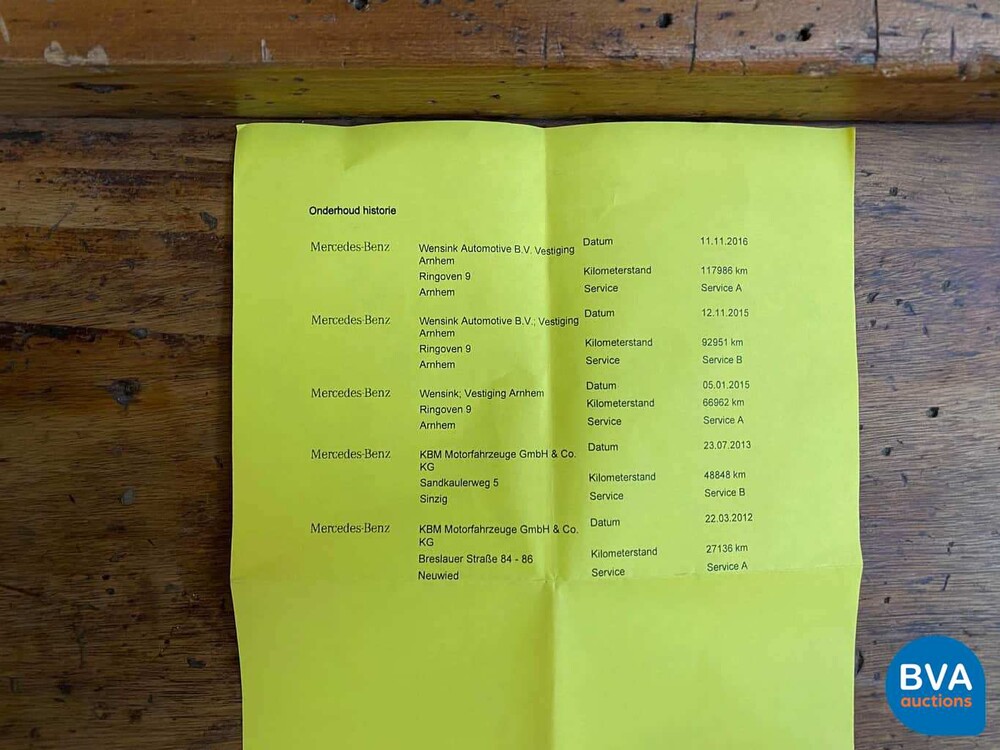 Onderhoud historie
Mercedes-Benz Wensink Automotive B.V. Vestiging Datum 11.11.2016
Arnhem
Ringoven 9 Kilometerstand 117986 km
Arnhem Service Service A
Mercedes-Benz Wensink Automotive B.V.; Vestiging Datum 12.11.2015
Arnhem
Ringoven 9 Kilometerstand 92951 km
Arnhem Service Service B
Mercedes-Benz Wensink; Vestiging Arnhem Datum 05.01.2015
Ringoven 9 Kilometerstand 66962 km
Arnhem Service Service A
Mercedes-Benz KBM Motorfahrzeuge GmbH & Co. Datum 23.07.2013
KG
Sandkaulerweg 5 Kilometerstand 48848 km
Sinzig Service Service B
Mercedes-Benz KBM Motorfahrzeuge GmbH & Co. Datum 22.03.2012
KG
Breslauer Straße 84 - 86 Kilometerstand 27136 km
Neuwied Service Service A
BVA
auctions